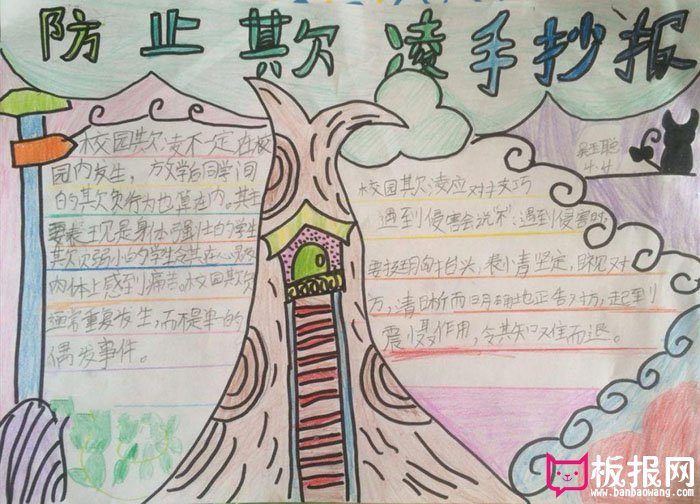 防止欺凌手抄报
校园欺凌不一定在校
园内发生，放学后同学间
的欺负行为也算在内。其主
要表现是身体强壮的学生
欺负弱小的学生令其在心灵
肉体上感到痛苦。校园欺负
通常重复发生，而不是单一的
偶发事件。
4.4
校园欺凌应对技巧
遇到侵害会说"不"：遇到侵害时
要挺胸抬头，表情坚定，眼见对
方，清晰而明确地正告对方，起到
震慑作用，令其知难而退。
板报网
www.banbaowang.com